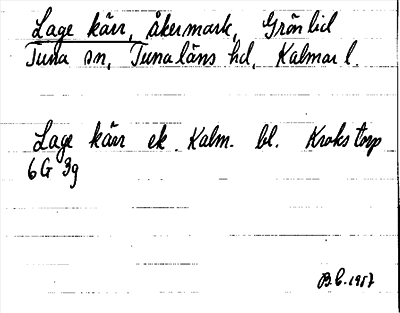 Lage kärr, åkermark, Grönlid
Tuna sn, Tunaläns hd, Kalmar l.
Lage kärr ek. Kalm. bl. Krokstorp
6G 3g